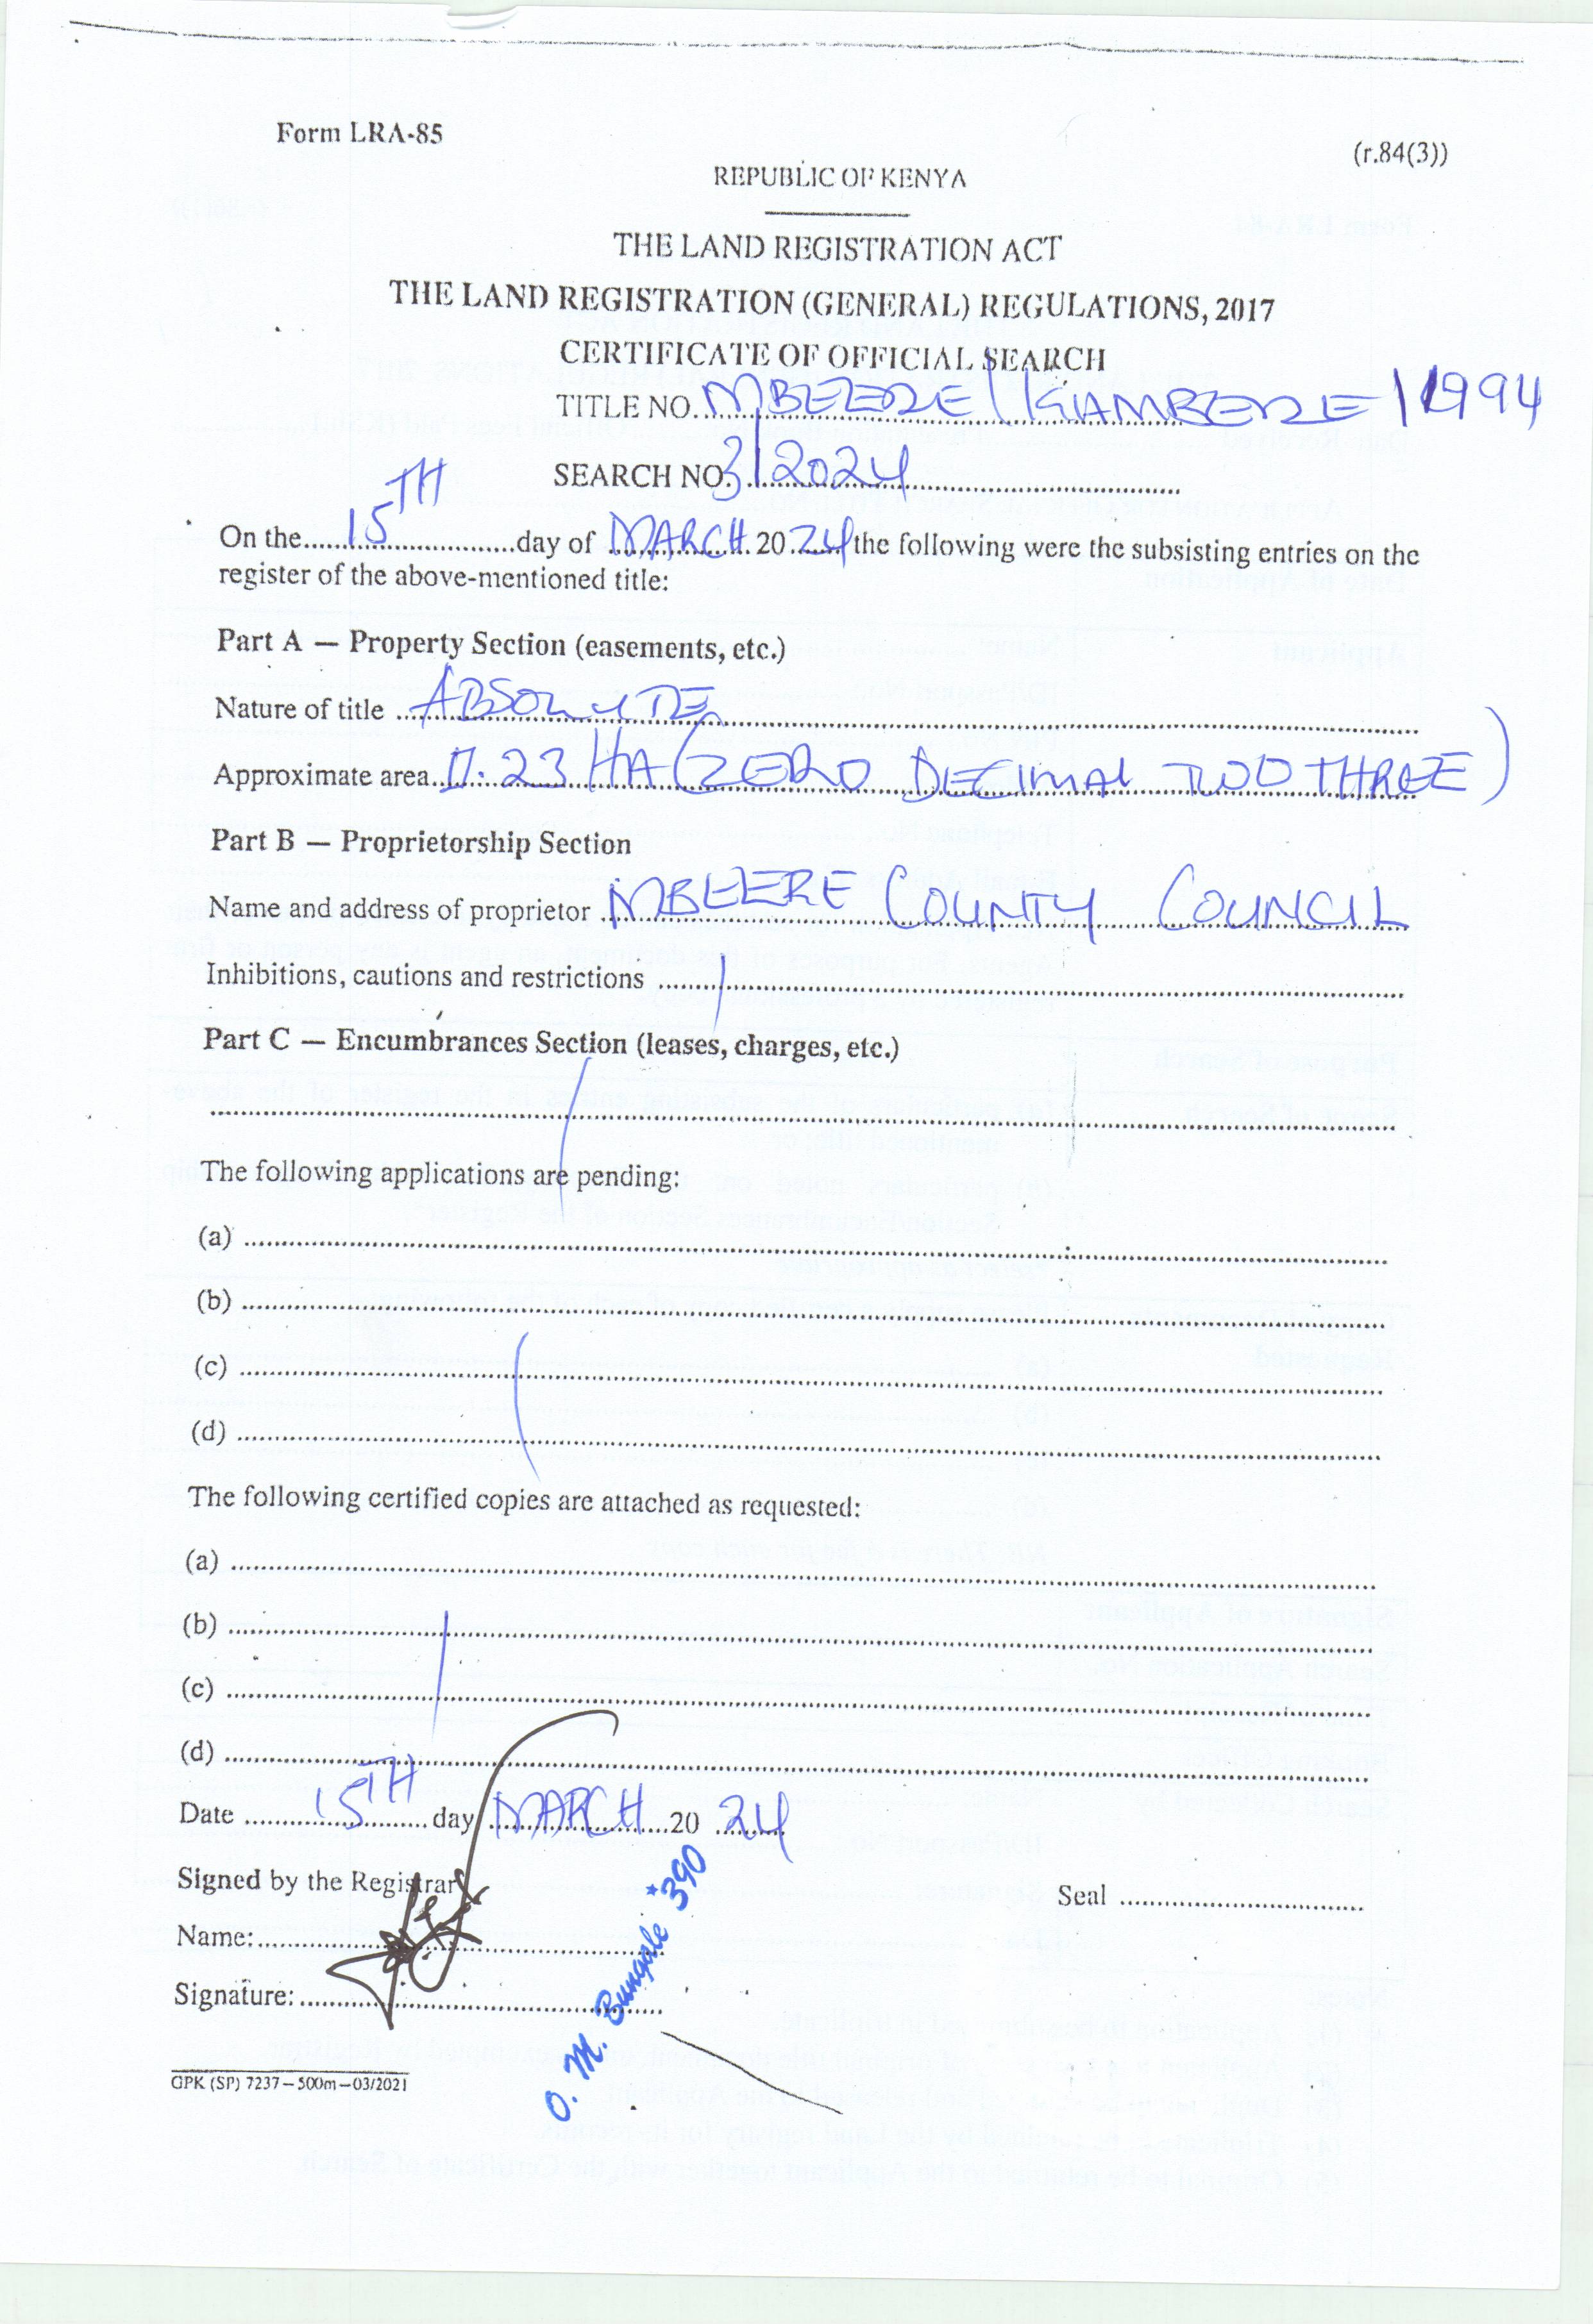 Form LRA-85
(r.84(3))
REPUBLIC OF KENYA
THE LAND REGISTRATION ACT
THE LAND REGISTRATION (GENERAL) REGULATIONS, 2017
CERTIFICATE OF OFFICIAL SEARCH
TITLE NO. MBEERE/KIAMBERE/1994
SEARCH NO. 3/2024
On the 15TH day of MARCH 2024 the following were the subsisting entries on the
register of the above-mentioned title:
Part A — Property Section (easements, etc.)
Nature of title ABSOLUTE
Approximate area 0.23 HA (ZERO DECIMAL TWO THREE)
Part B — Proprietorship Section
Name and address of proprietor MBEERE COUNTY COUNCIL
Inhibitions, cautions and restrictions
Part C — Encumbrances Section (leases, charges, etc.)
The following applications are pending:
(a)
(b)
(c)
(d)
The following certified copies are attached as requested:
(a)
(b)
(c)
(d)
Date 15TH day MARCH 20 24
Signed by the Registrar
Seal
Name:
Signature:
O. M. Bungale *390
GPK (SP) 7237–500m–03/2021